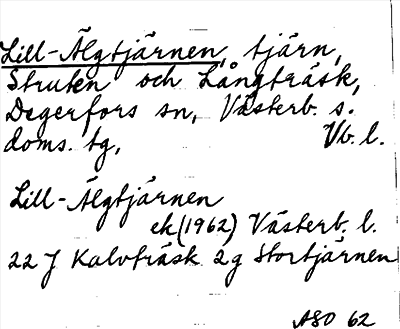 Lill-Älgtjärnen, tjärn,
Struten och Långträsk,
Degerfors sn, Västerb. s.
doms. tg, Vb. l.
Lill-Älgtjärnen
ek (1962) Västerb. l.
22 J Kalvträsk 2g Stortjärnen
ASO 62